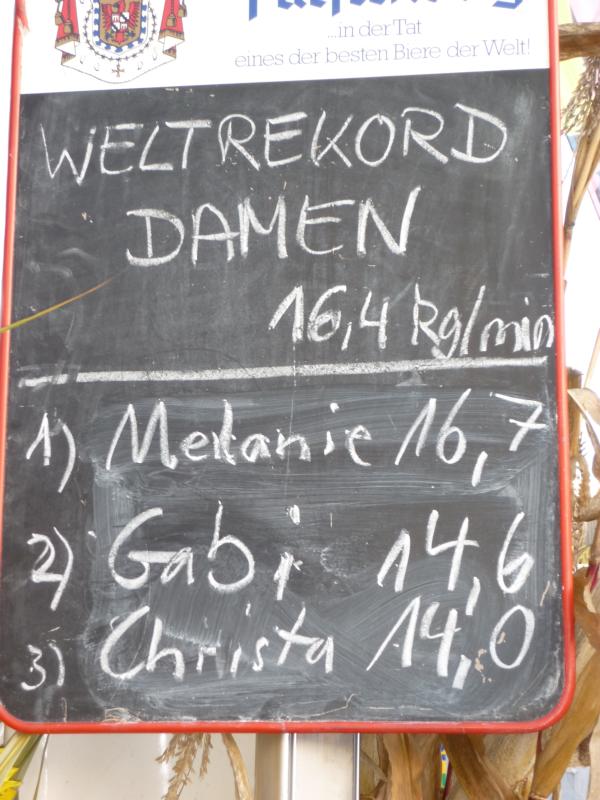 ...in der Tat
eines der besten Biere der Welt!
WELTREKORD
DAMEN
16,4 kg/min
1) Melanie 16,7
2) Gabi 14,6
3) Christa 14,0